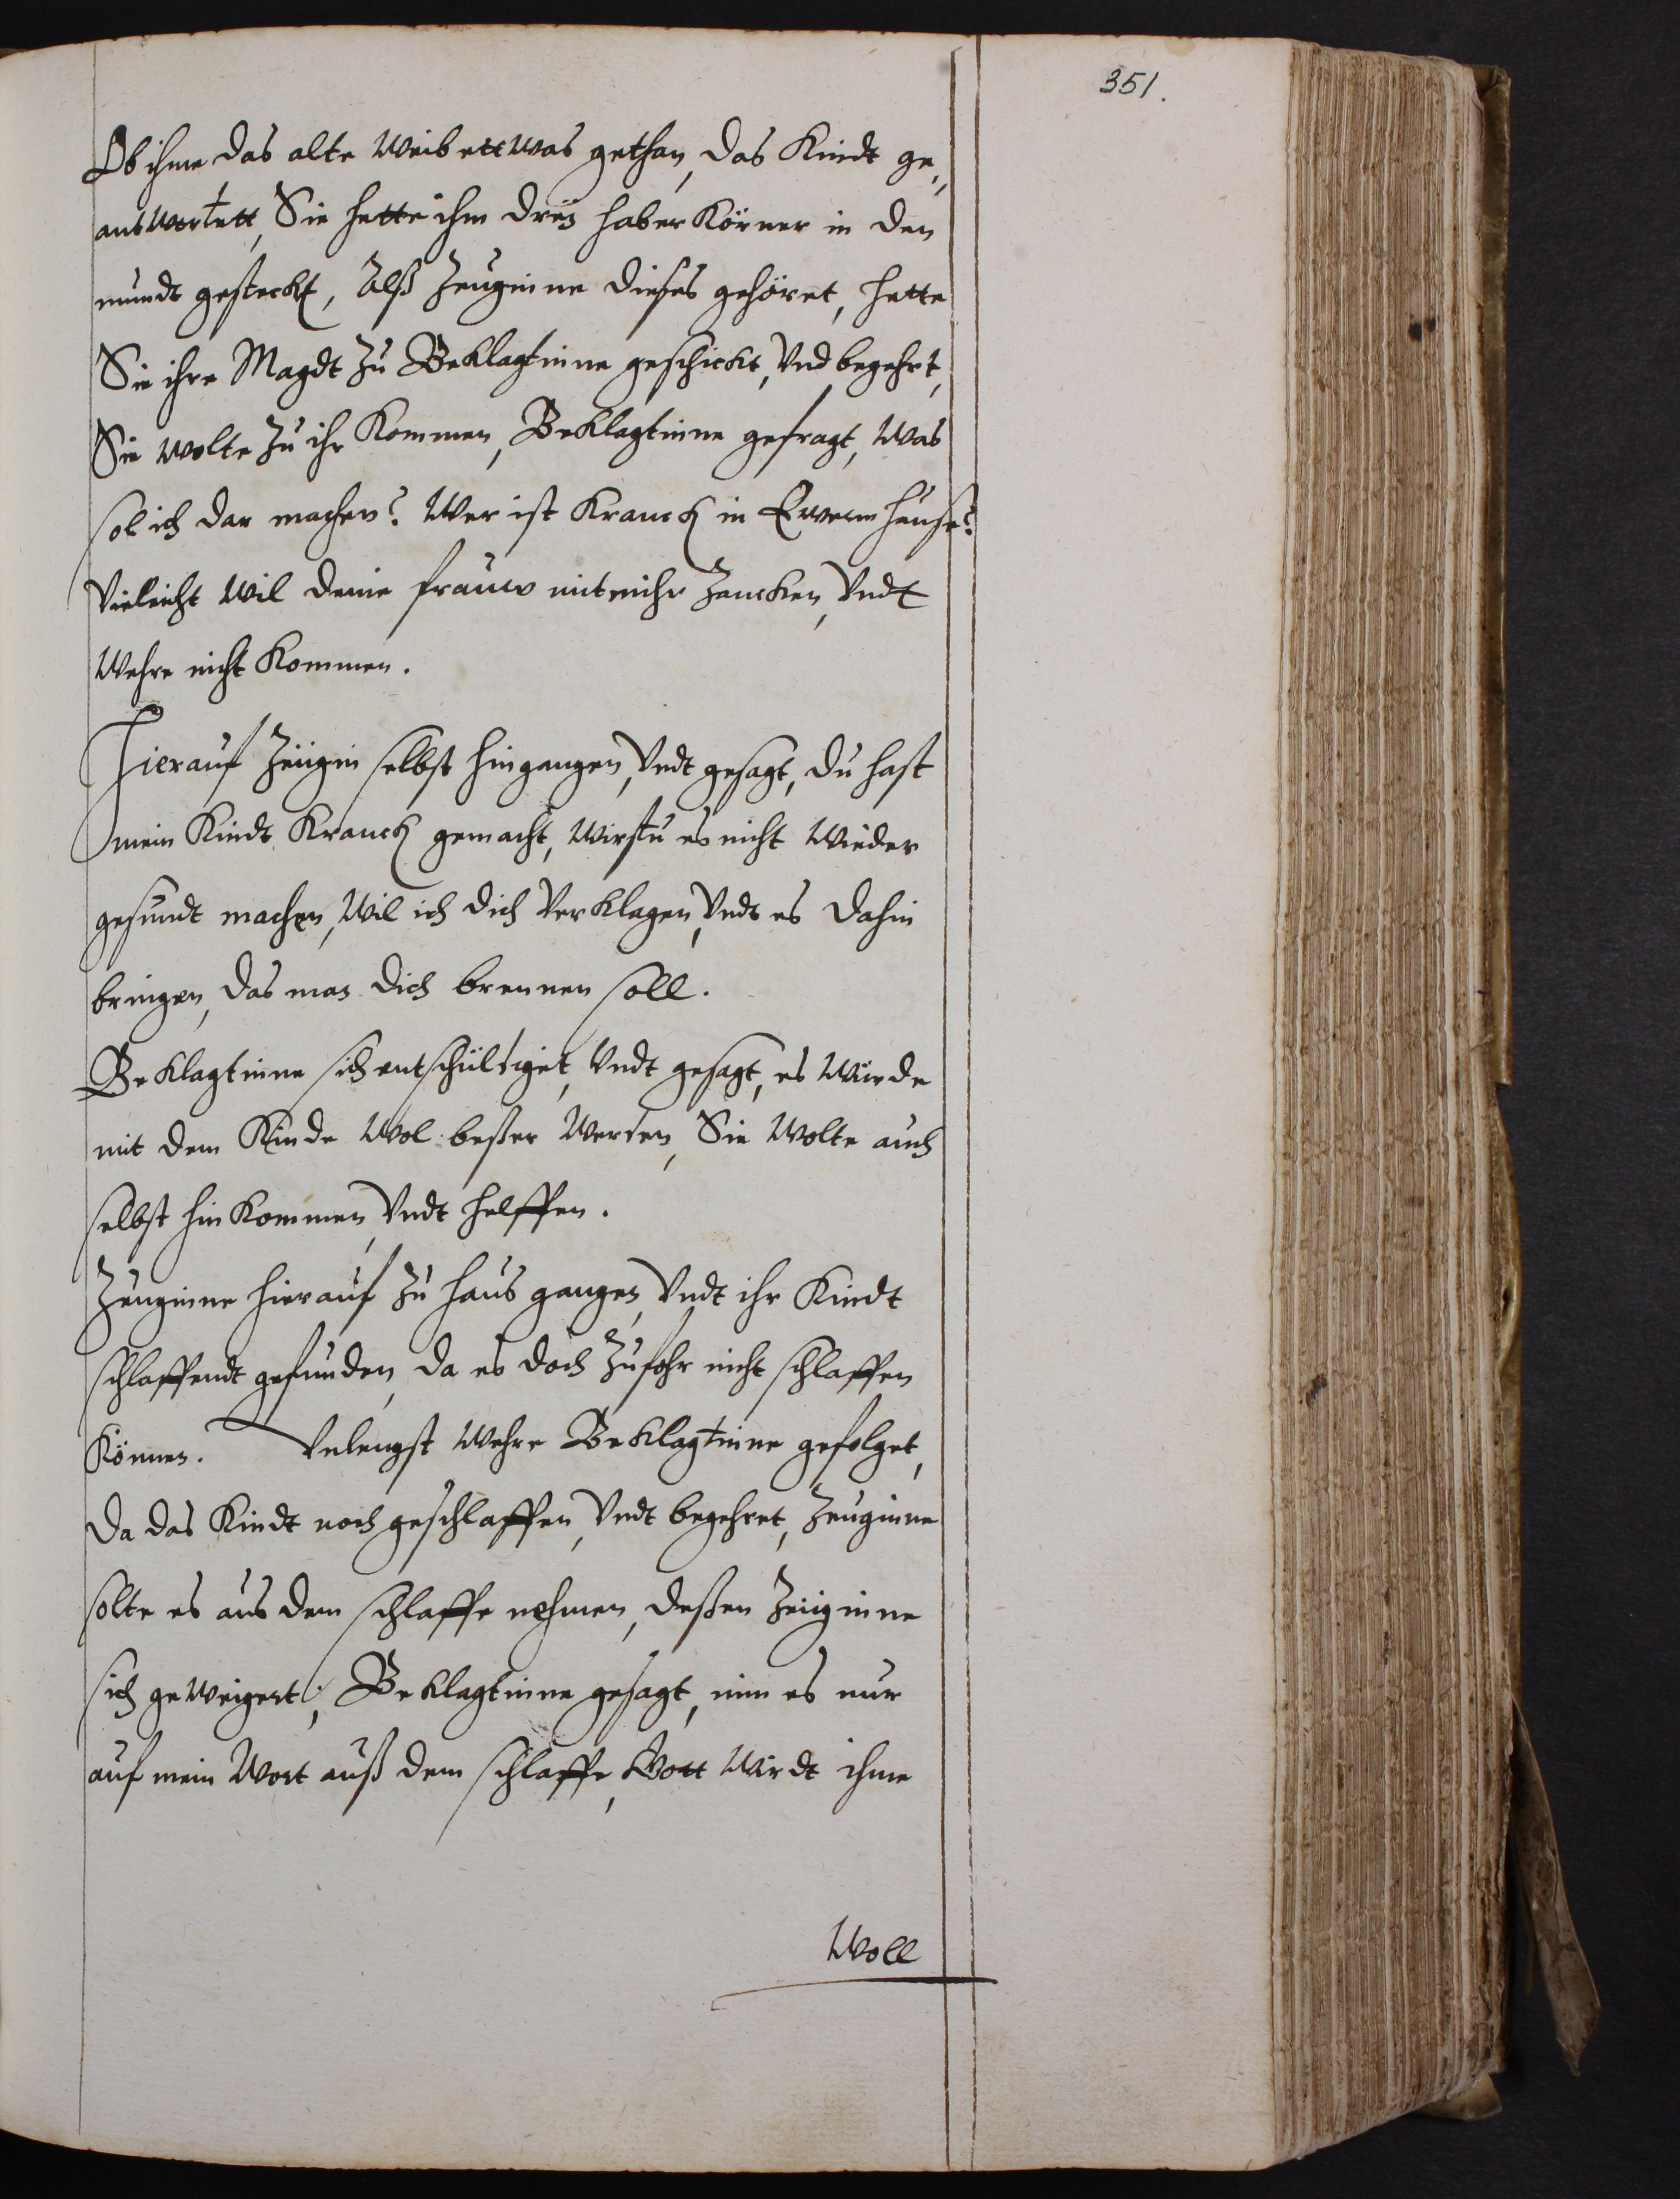 351.
Ob ihme das alte Weib ettwas gethan, das Kindt ge„
antwortett, Sie hette ihm dreÿ haber Körner in den
mundt gesteckt, Alß Zeuginne dieses gehöret, hette
Sie ihre Magdt zu Beklagtinne geschickt, Vnd begehrt,
Sie wolte zu ihr Kommen, Beklagtinne gefragt, Was
sol ich dar machen? Wer ist Kranck in Ewrem hause?
Vieleicht Wil deine frauw mit mihr Zancken, Vndt
Wehre nicht Kommen.
Hierauf Zeügin selbst hingangen, Vndt gesagt, du hast
mein Kindt Kranck gemacht, Wirstu es nicht Wieder
gesundt machen, Wil ich dich Verklagen, Vndt es dahin
bringen, das man dich brennen soll.
Beklagtinne sich entschültiget, Vndt gesagt, es Würde
mit dem Kinde Wol beßer Werden, Sie Wolte auch
selbst hin Kommen, Vndt helffen.
Zeuginne hierauf zu haus gangen, Vndt ihr Kindt
schlaffendt gefunden, da es doch Zufohr nicht schlaffen
Können. Vnlengst Wehre Beklagtinne gefolget,
da das Kindt noch geschlaffen, Vndt begehret, Zeuginne
solte es aus dem schlaffe nehmen, deßen Zeüginne
sich geweigert; Beklagtinne gesagt, nim es nur
auf mein Wort auß dem schlaffe, Gott Wirdt ihme
Woll